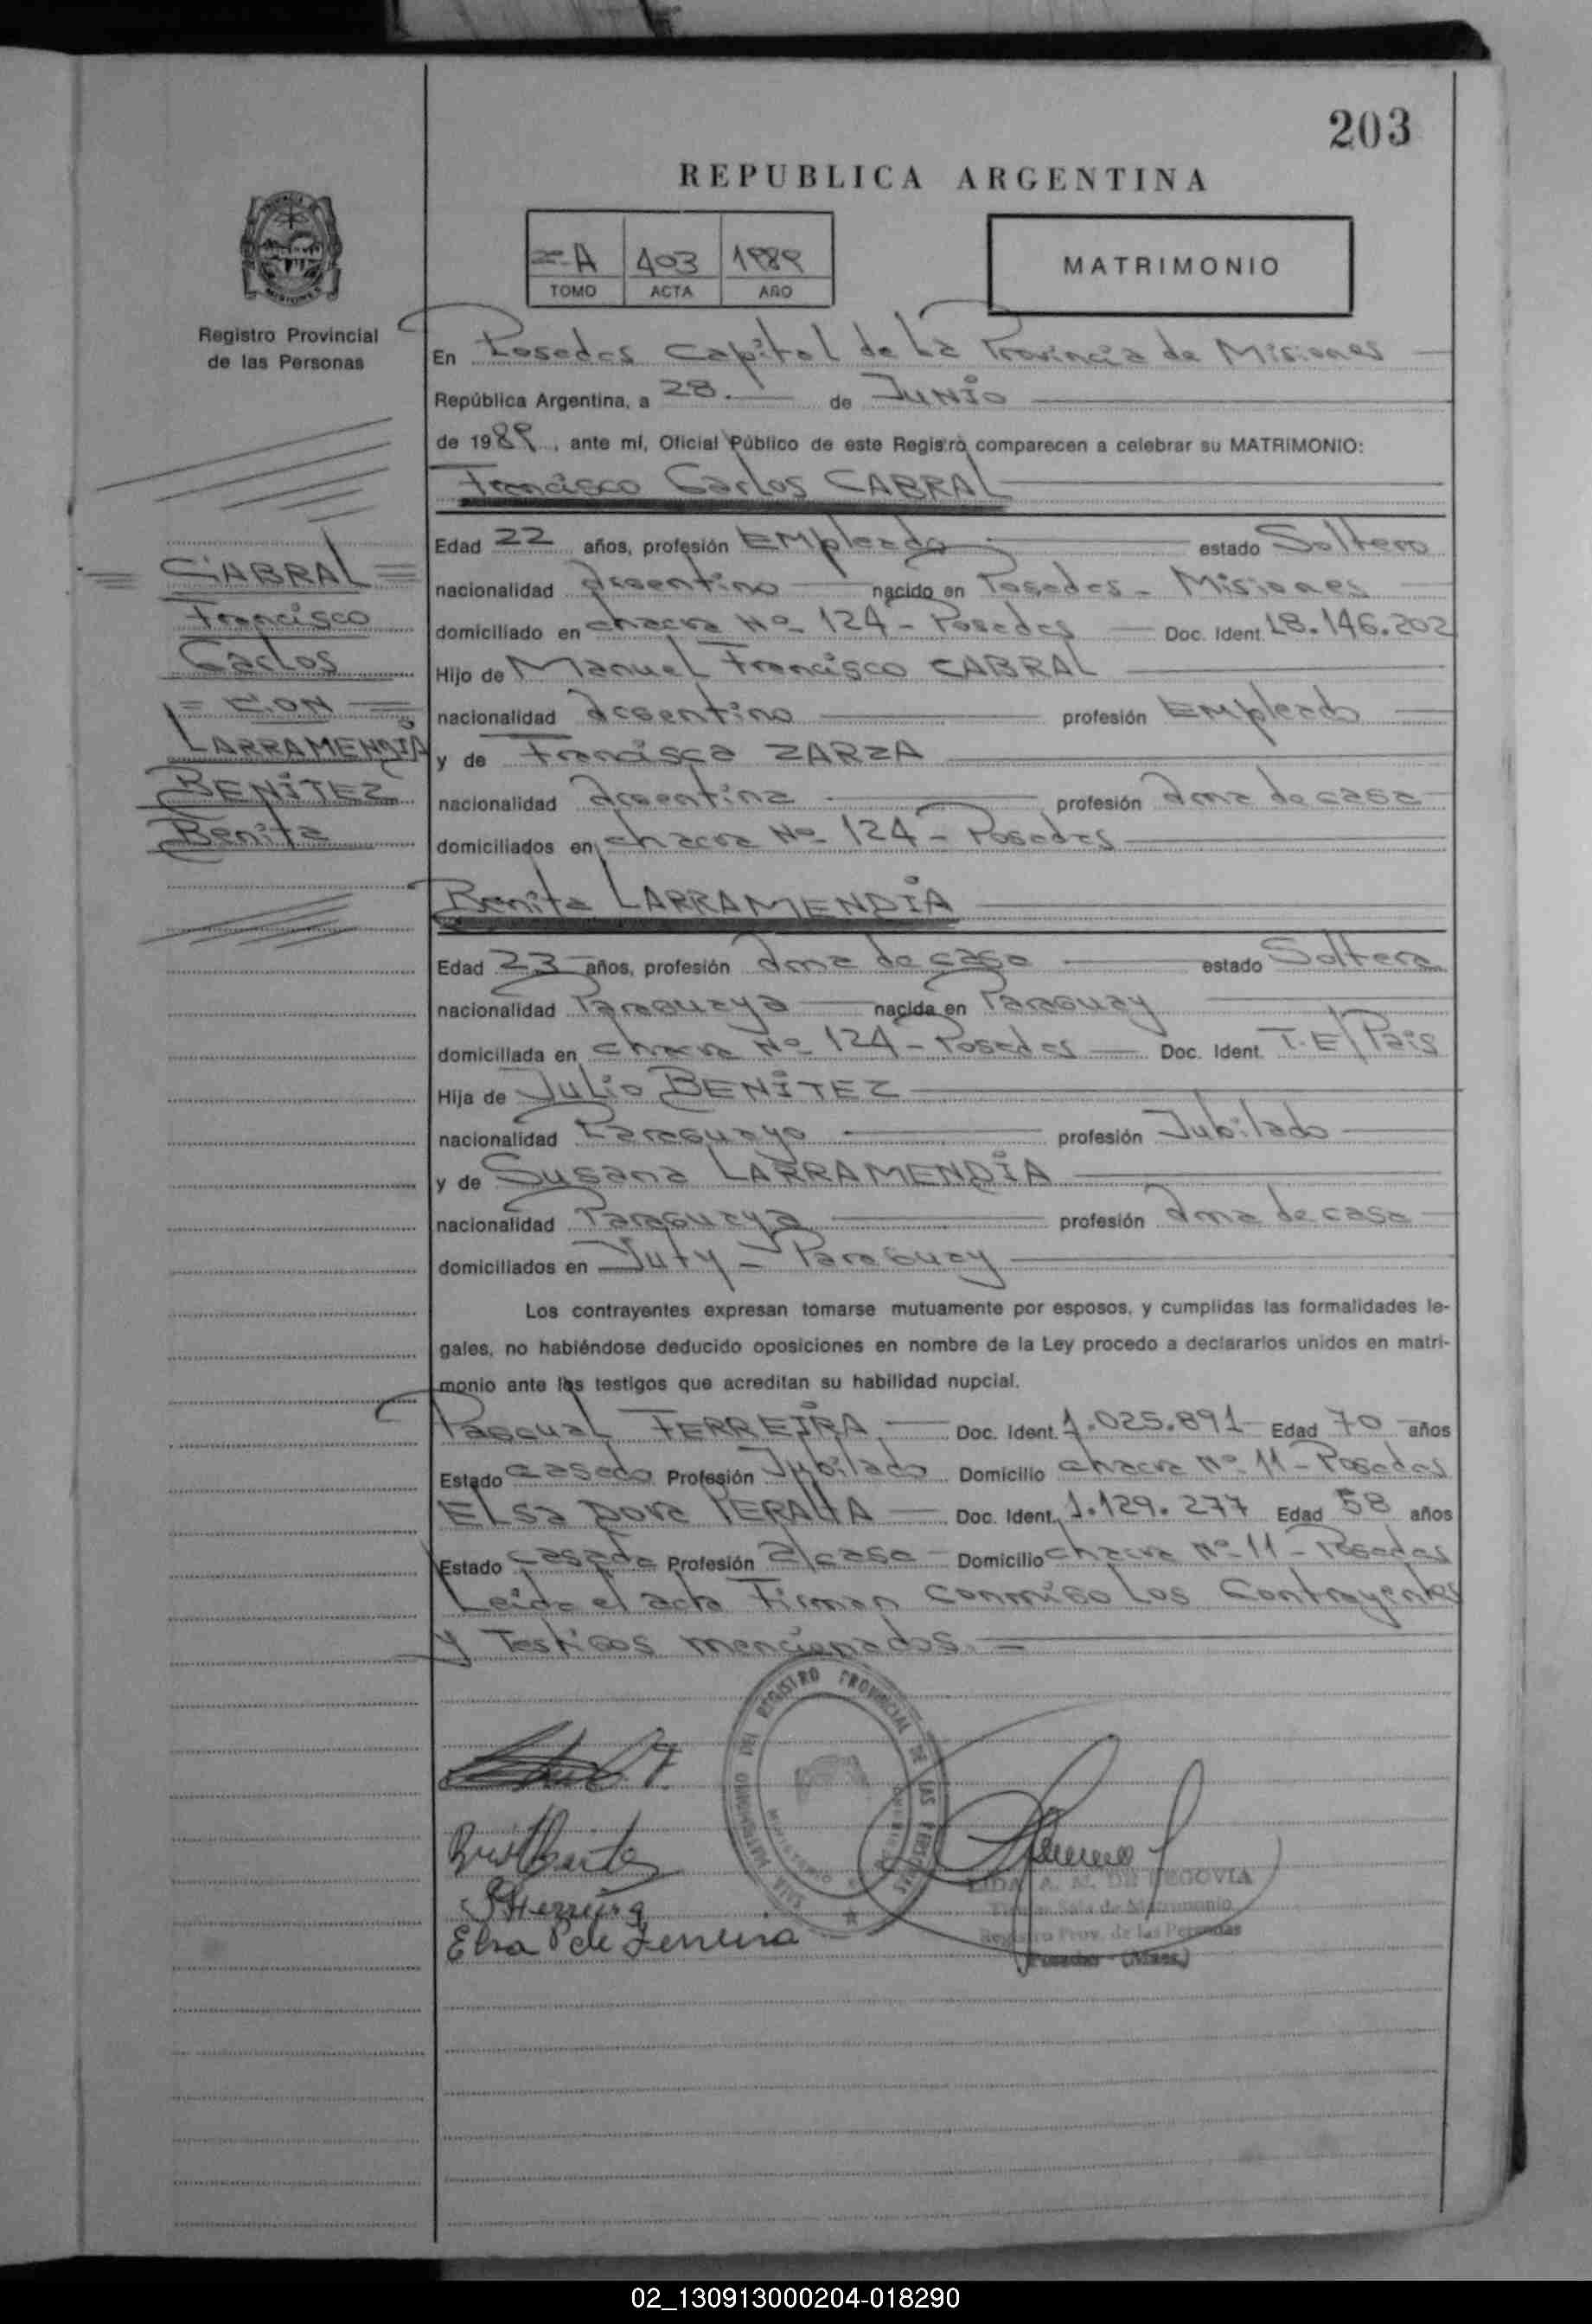 203
REPUBLICA ARGENTINA
A 403 1989
TOMO ACTA AÑO
MATRIMONIO
Registro Provincial
de las Personas
En Posadas Capital de La Provincia de Misiones
República Argentina, a 28. de Junio
de 1989, ante mí, Oficial Público de este Registro comparecen a celebrar su MATRIMONIO:
Francisco Carlos CABRAL
Edad 22 años, profesión Empleado estado Soltero
nacionalidad argentino nacido en Posadas - Misiones
domiciliado en chacra Nº 124 - Posadas Doc. Ident. 18.146.202
Hijo de Manuel Francisco CABRAL
nacionalidad argentino profesión Empleado
y de Francisca ZARZA
nacionalidad argentina profesión ama de casa
domiciliados en chacra Nº 124 - Posadas
CABRAL
Francisco
Carlos
= CON =
LARRAMENDIA
BENITEZ
Benita
Benita LARRAMENDIA
Edad 23 años, profesión ama de casa estado Soltera
nacionalidad Paraguaya nacida en Paraguay
domiciliada en chacra Nº 124 - Posadas Doc. Ident. T.E/Pais
Hija de Julio BENITEZ
nacionalidad Paraguayo profesión Jubilado
y de Susana LARRAMENDIA
nacionalidad Paraguaya profesión ama de casa
domiciliados en Yuty - Paraguay
Los contrayentes expresan tomarse mutuamente por esposos, y cumplidas las formalidades le-
gales, no habiéndose deducido oposiciones en nombre de la Ley procedo a declararlos unidos en matri-
monio ante los testigos que acreditan su habilidad nupcial.
Pascual FERREIRA Doc. Ident. 1.025.891 Edad 70 años
Estado casado Profesión Jubilado Domicilio chacra Nº 11 - Posadas
ELsa Dora PERALTA Doc. Ident. 1.129.277 Edad 58 años
Estado casada Profesión a/casa Domicilio chacra Nº 11 - Posadas
Leida el acta Firman conmigo Los Contrayentes
y Testigos mencionados.
SALA MATRIMONIO DEL REGISTRO PROVINCIAL DE LAS PERSONAS
Elsa P de Ferreira
LIDA A. M. DE SEGOVIA
Sala de Matrimonio
Registro Prov. de las Personas
Posadas (Mnes.)
02_130913000204-018290